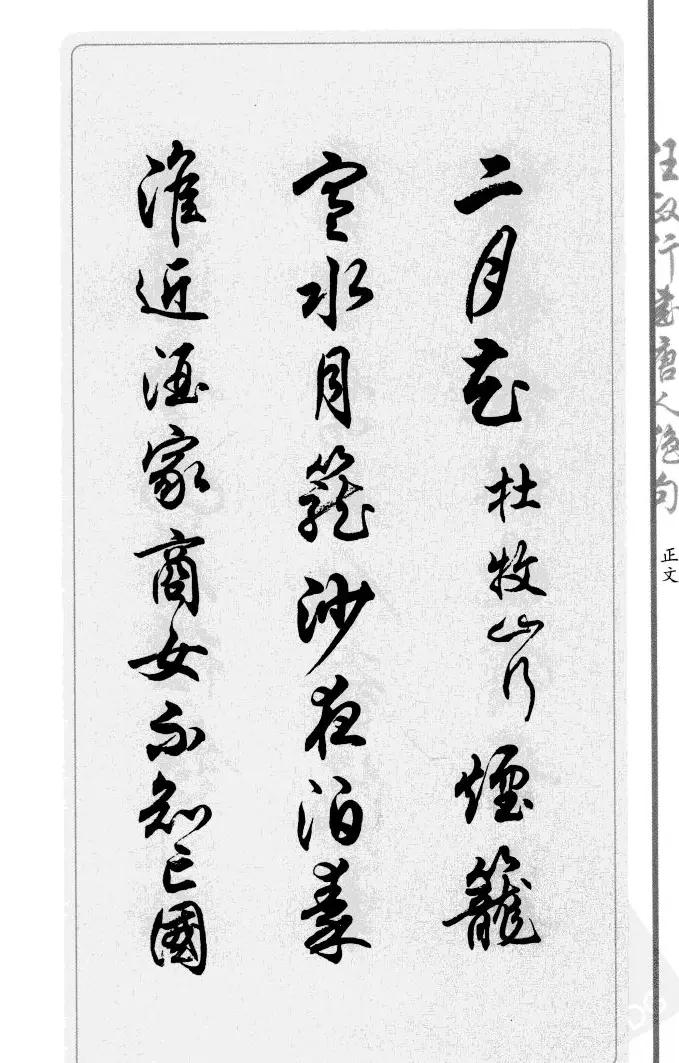 二月花 杜牧山行 煙籠
寒水月籠沙夜泊秦
淮近酒家商女不知亡國
任政行書唐人絕句
正文